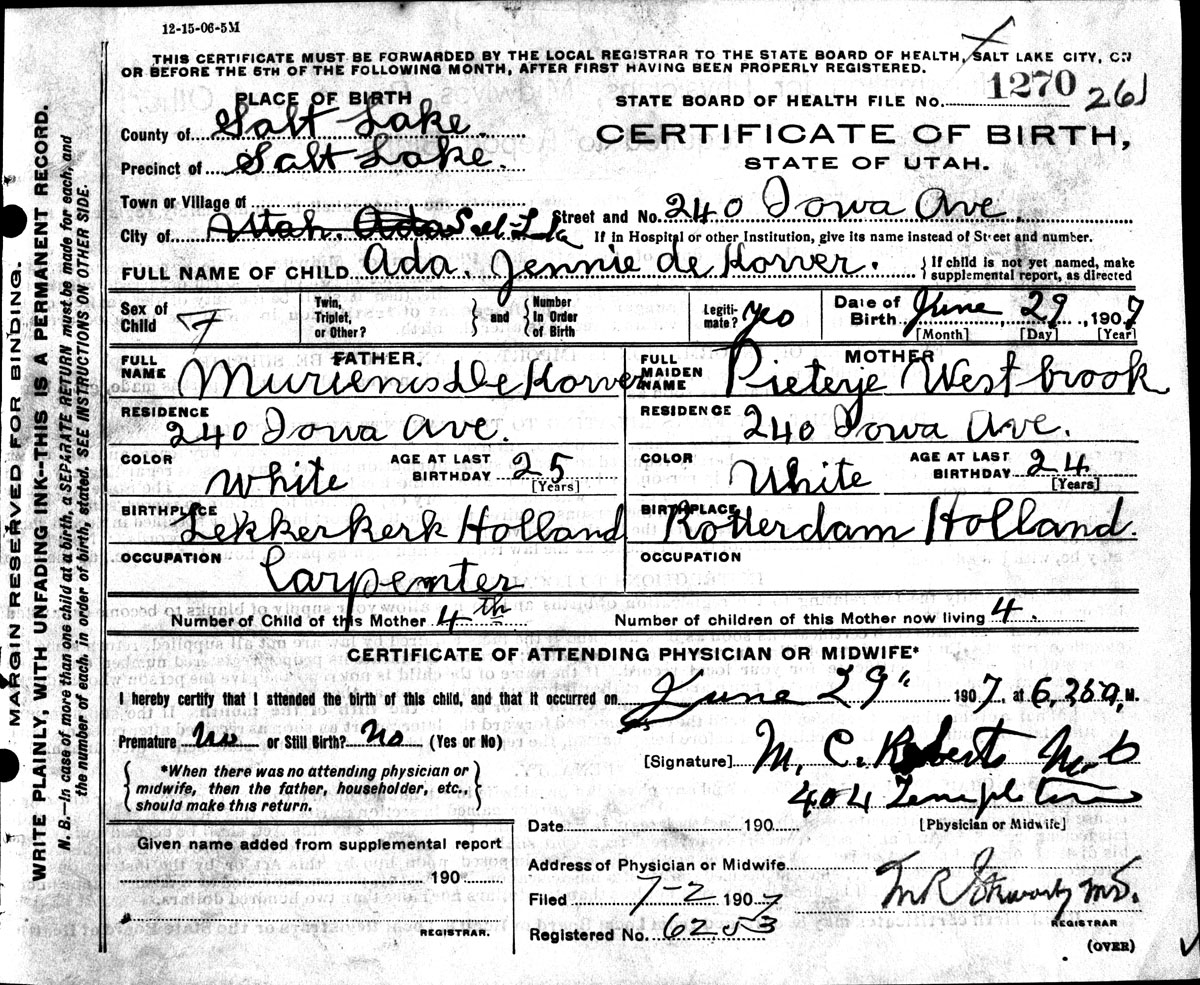 12-15-06-5M
THIS CERTIFICATE MUST BE FORWARDED BY THE LOCAL REGISTRAR TO THE STATE BOARD OF HEALTH, SALT LAKE CITY, ON
OR BEFORE THE 5TH OF THE FOLLOWING MONTH, AFTER FIRST HAVING BEEN PROPERLY REGISTERED.
MARGIN RESERVED FOR BINDING.
WRITE PLAINLY, WITH UNFADING INK--THIS IS A PERMANENT RECORD.
N. B.—In case of more than one child at a birth, a SEPARATE RETURN must be made for each, and
the number of each, in order of birth, stated. SEE INSTRUCTIONS ON OTHER SIDE.
PLACE OF BIRTH
STATE BOARD OF HEALTH FILE No. 1270 261
County of Salt Lake.
CERTIFICATE OF BIRTH,
Precinct of Salt Lake.
STATE OF UTAH.
Town or Village of
Street and No. 240 Iowa Ave.
City of Utah. Ada
If in Hospital or other Institution, give its name instead of Street and number.
FULL NAME OF CHILD Ada. Jennie de Korver.
{If child is not yet named, make
supplemental report, as directed
Sex of Child F
Twin, Triplet, or Other? } and { Number In Order of Birth
Legiti- mate? Yes
Date of Birth June 29, 1907
[Month] [Day] [Year]
FATHER.
FULL NAME Murienus De Korver
MOTHER
FULL MAIDEN NAME Pieterje Westbrook
RESIDENCE 240 Iowa Ave.
RESIDENCE 240 Iowa Ave.
COLOR White AGE AT LAST BIRTHDAY 25 [Years]
COLOR White AGE AT LAST BIRTHDAY 24 [Years]
BIRTHPLACE Lekkerkerk Holland
BIRTHPLACE Rotterdam Holland.
OCCUPATION Carpenter
OCCUPATION
Number of Child of this Mother 4th
Number of children of this Mother now living 4.
CERTIFICATE OF ATTENDING PHYSICIAN OR MIDWIFE*
I hereby certify that I attended the birth of this child, and that it occurred on June 29" 1907 at 6,35 a, M.
Premature No or Still Birth? No (Yes or No)
[Signature] M. C. Roberts M D
{*When there was no attending physician or
midwife, then the father, householder, etc.,
should make this return.}
404 Templeton
[Physician or Midwife]
Date 190
Given name added from supplemental report
190
REGISTRAR.
Address of Physician or Midwife
Filed 7-2 1907
Registered No. 62
REGISTRAR
(OVER)